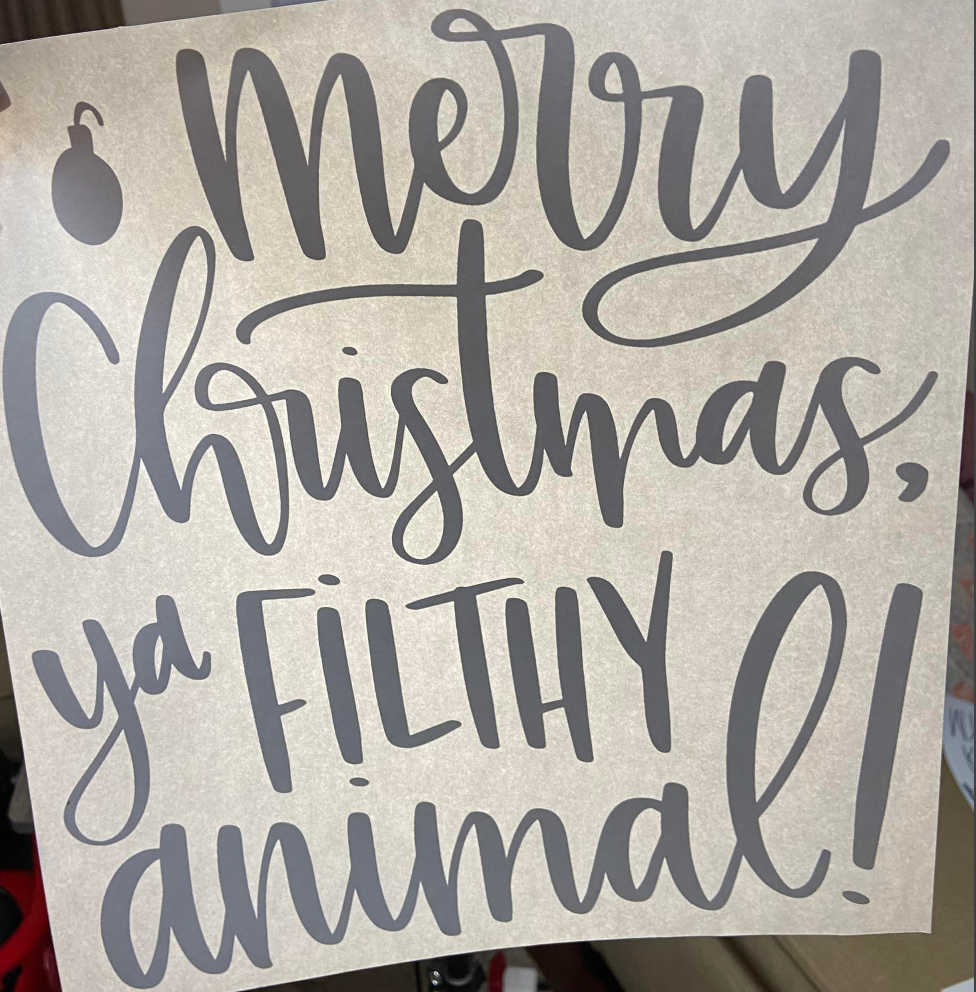 Merry
Christmas,
ya FiLTHY
animal!